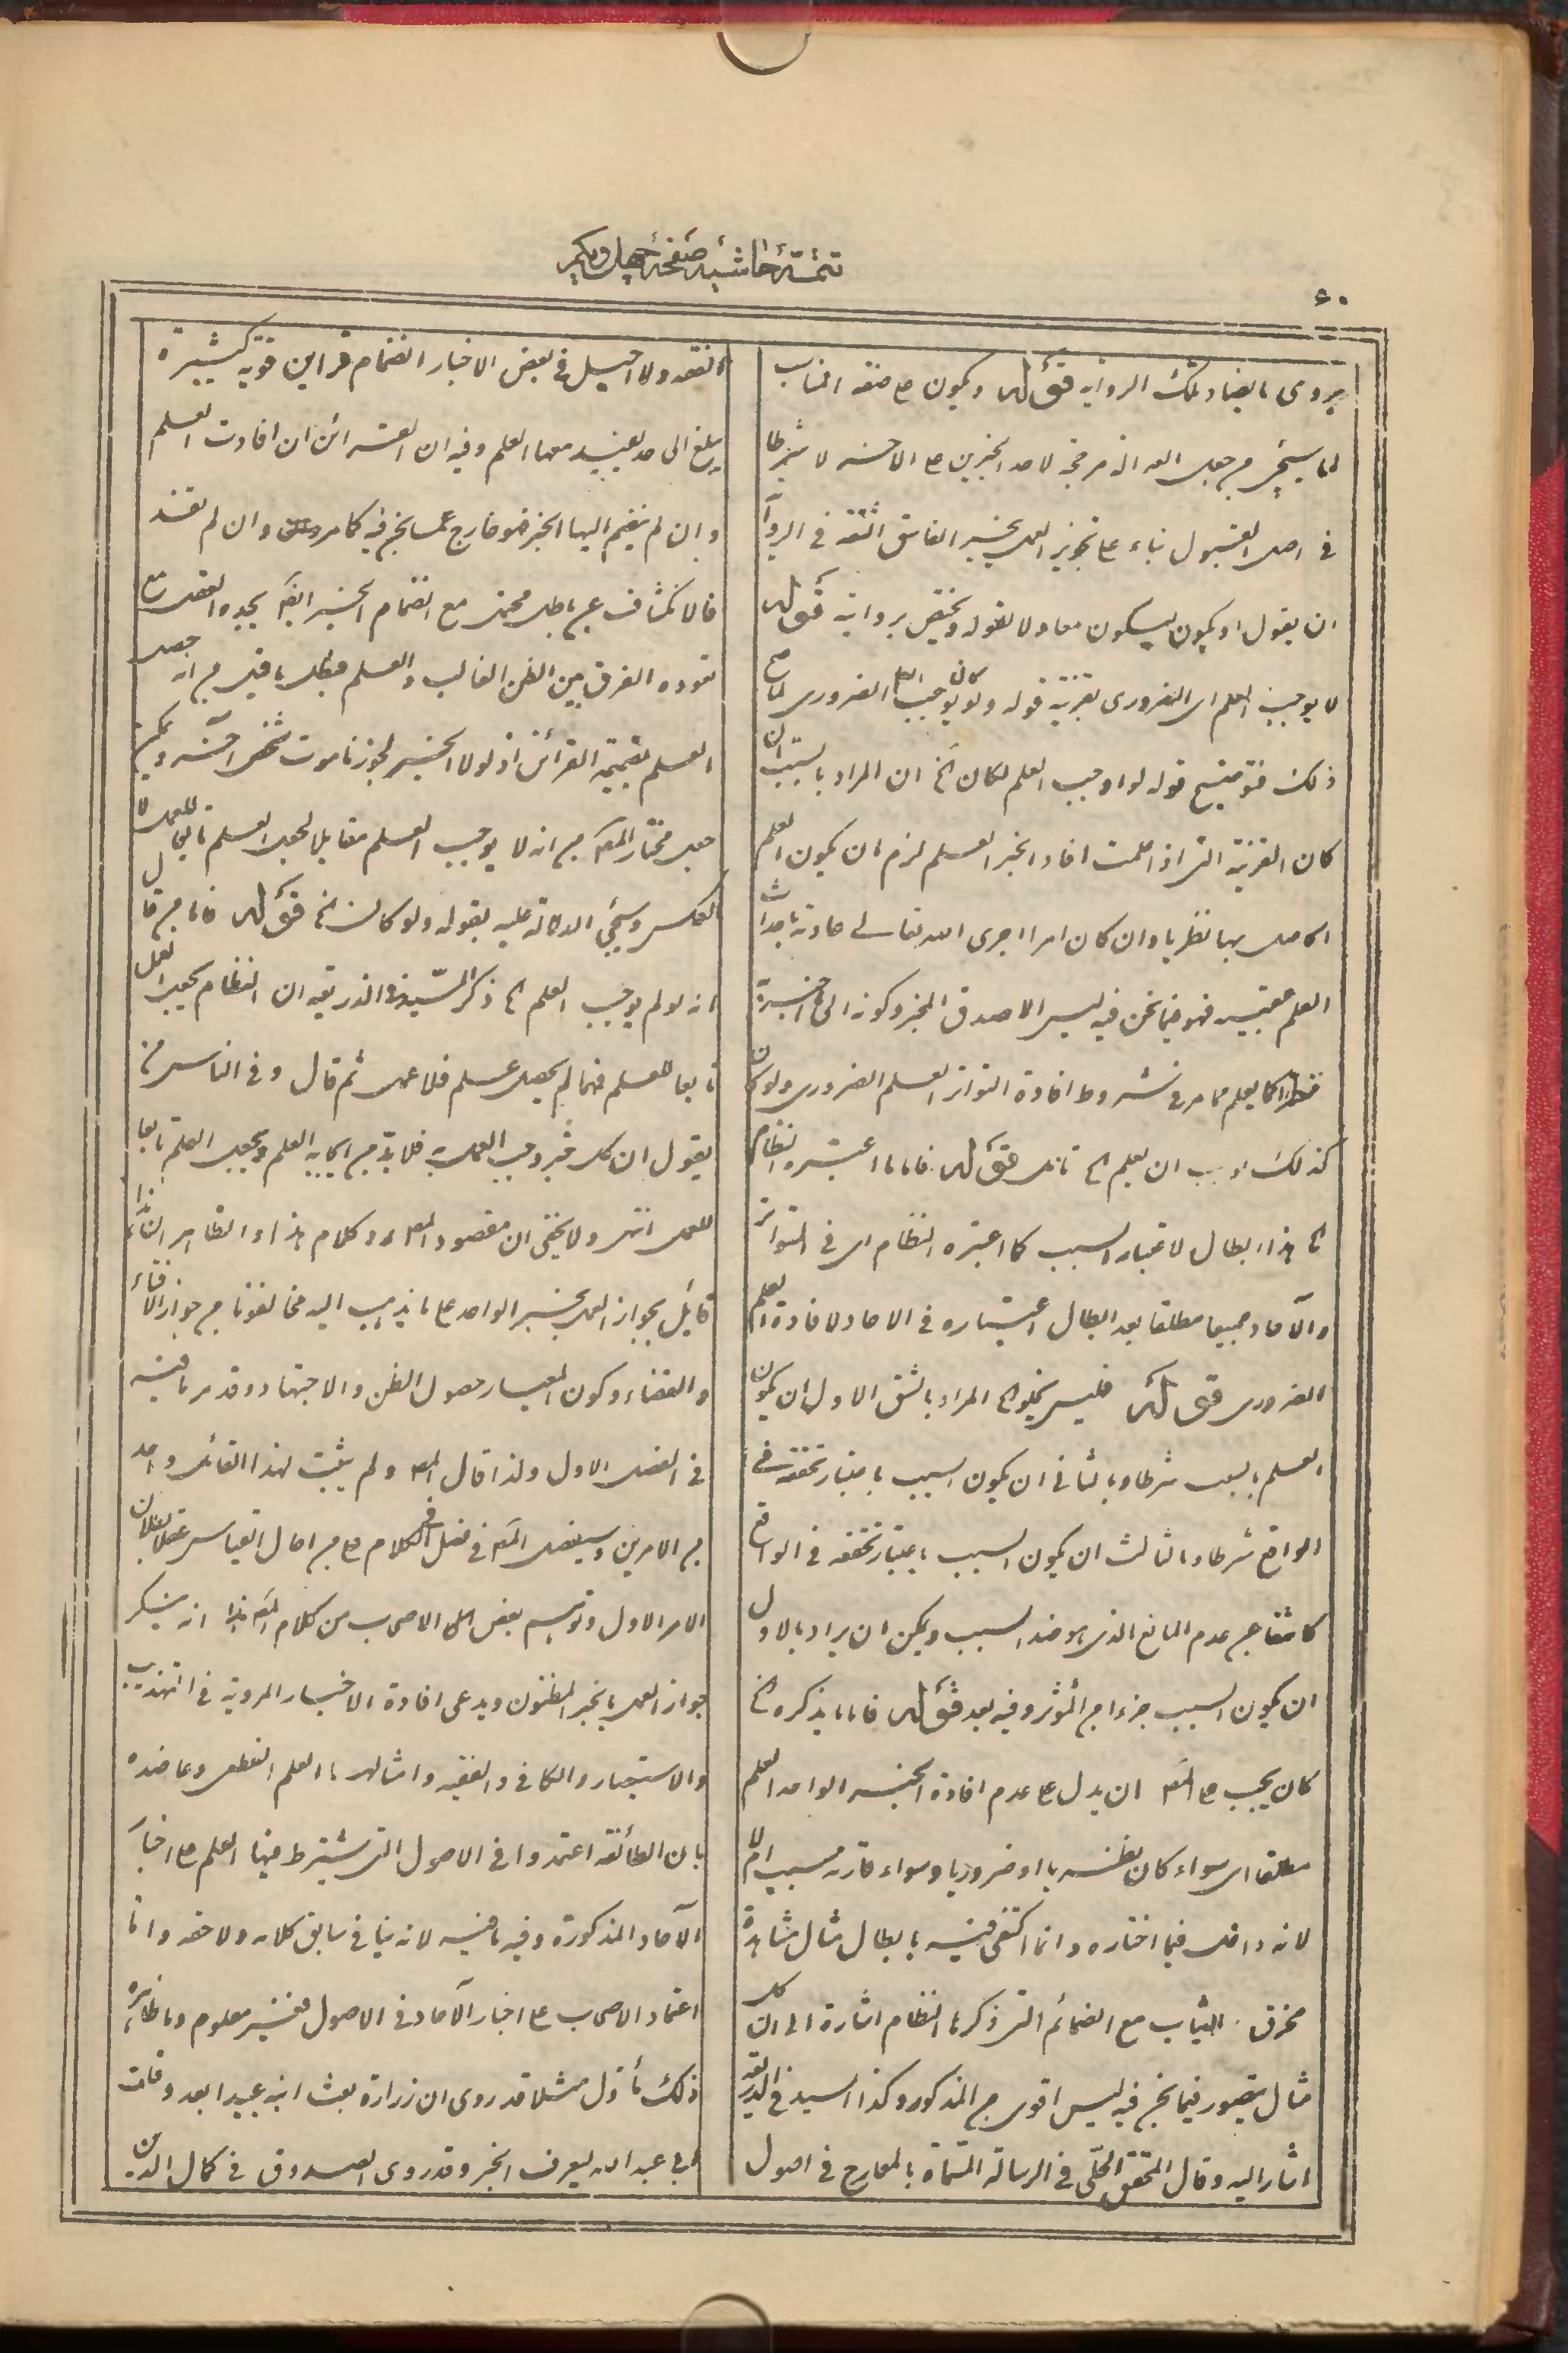 تتمّۀ حاشیۀ صفحۀ چهل و یکم
۶۰
یروی ما یضاد تلک الروایه قوله ویکون ع صفه المناسب
لما سیجئ من جعل العدالة مرجحة لاحد الخبرین ع الاخر لا شرطا
فی اصل القبول بناء ع تجویز العمل بخبر الفاسق الثقه فی الروا
ان یقول او یکون لیکون معادلا لقوله ویختص بروایته قوله
لا یوجب العلم ای الضروری بقرینة قوله ولو کان یوجب العلم الضروری لما صح
ذلک فتوضیح قوله لو اوجب العلم لکان الخ ان المراد بالسبب ان
کان القرینة التی اذا علمت افاد الخبر العلم لزم ان یکون العلم
الحاصل بها نظریا وان کان امرا اجری الله تعالی عادته باحداث
العلم عقیبه فهو فیما نحن فیه لیس الا صدق المخبر وکونه الی اخره
فنظرا کما یعلم مما مر فی شروط افادة التواتر العلم الضروری ولو کان
کذلک لوجب ان یعلم الخ تامل قوله فاما ما اعتبره النظام
الخ هذا ابطال لاعتبار السبب کما اعتبره النظام ای فی المتواتر
والآحاد جمیعا مطلقا بعد ابطال اعتباره فی الاحاد لافادة العلم
الضروری قوله فلیس یخلو الخ المراد بالشق الاول ان یکون
العلم بالسبب شرطا وبالثانی ان یکون السبب باعتبار تحققه فی
الواقع شرطا وبالثالث ان یکون السبب باعتبار تحققه فی الواقع
کاشفا عن عدم المانع الذی هو ضد السبب ویمکن ان یراد بالاول
ان یکون السبب جزءا من المؤثر وفیه بعد قوله فاما ما یذکره الخ
کان یجب ع المص ان یدل ع عدم افادة الخبر الواحد العلم
مطلقا ای سواء کان نظریا او ضروریا وسواء قارنه سبب ام لا
لانه داخل فیما اختاره وانما اکتفی فیه بابطال مثال مشاهدة
مخرق الثیاب مع الضمائم التی ذکرها النظام اشارة الی ان کل
مثال یتصور فیما نحن فیه لیس اقوی من المذکور وکذا السید فی الذریعه
اشار الیه وقال المحقق الحلّی فی الرسالة المسّماة بالمعارج فی اصول
الفقه ولا احیل فی بعض الاخبار انضمام قراین قویه کثیرة
یبلغ الی حد یفید معها العلم وفیه ان القرائن ان افادت العلم
وان لم ینضم الیها الخبر فهو خارج عما نحن فیه کما مر وان لم تفد
فالانکشاف عن باطل محتمل مع انضمام الخبر ایضا یجده العقل مع
تعوده الفرق بین الظن الغالب والعلم فبطل ما قیل من انه حصل
العلم بضمیمة القرائن اذ لولا الخبر لجوزنا موت شخص آخر ویمکن
جعل مختار المص من انه لا یوجب العلم مقابلا لجعل العلم تابعا للعمل لا
العکس وسیجئ الدلالة علیه بقوله ولو کان الخ قوله فاما من قال
انه لو لم یوجب العلم الخ ذکر السّید فی الذریعه ان النظام یجعل العمل
تابعا للعلم فمهما لم یحصل علم فلا عمل ثم قال وفی الناس من
یقول ان کل خبر وجب العمل به فلا بدّ من ایجابه العلم ویجعل العلم تابعا
للعمل انتهی ولا یخفی ان مقصود المص رد کلام هذا والظاهر ان هذا
قائل بجواز العمل بخبر الواحد ع ما یذهب الیه مخالفونا من جواز الافتاء
والقضاء وکون المعیار حصول الظن والاجتهاد وقد مر ما فیه
فی الفصل الاول ولذا قال المص ولم یثبت لهذا القائل واحد
من الامرین وسیفصل المص فی فصل فی الکلام ع من احال القیاس عقلا بطلان
الامر الاول وتوهم بعض اهل الاصحاب من کلام المص هذا انه ینکر
جواز العمل بالخبر المظنون ویدعی افادة الاخبار المرویة فی التهذیب
والاستبصار والکافی والفقیه وامثالها العلم القطعی وعاضده
بان الطائفه اعتمدوا فی الاصول التی یشترط فیها العلم ع اخبار
الآحاد المذکورة وفیه ما فیه لانه ینافی سابق کلامه ولاحقه واما
اعتماد الاصحاب ع اخبار الآحاد فی الاصول فغیر معلوم وما ظاهره
ذلک مأول مثلا قد روی ان زرارة بعث ابنه عبیدا بعد وفات
ابی عبد الله لیعرف الخبر وقد روی الصدوق فی کمال الدین